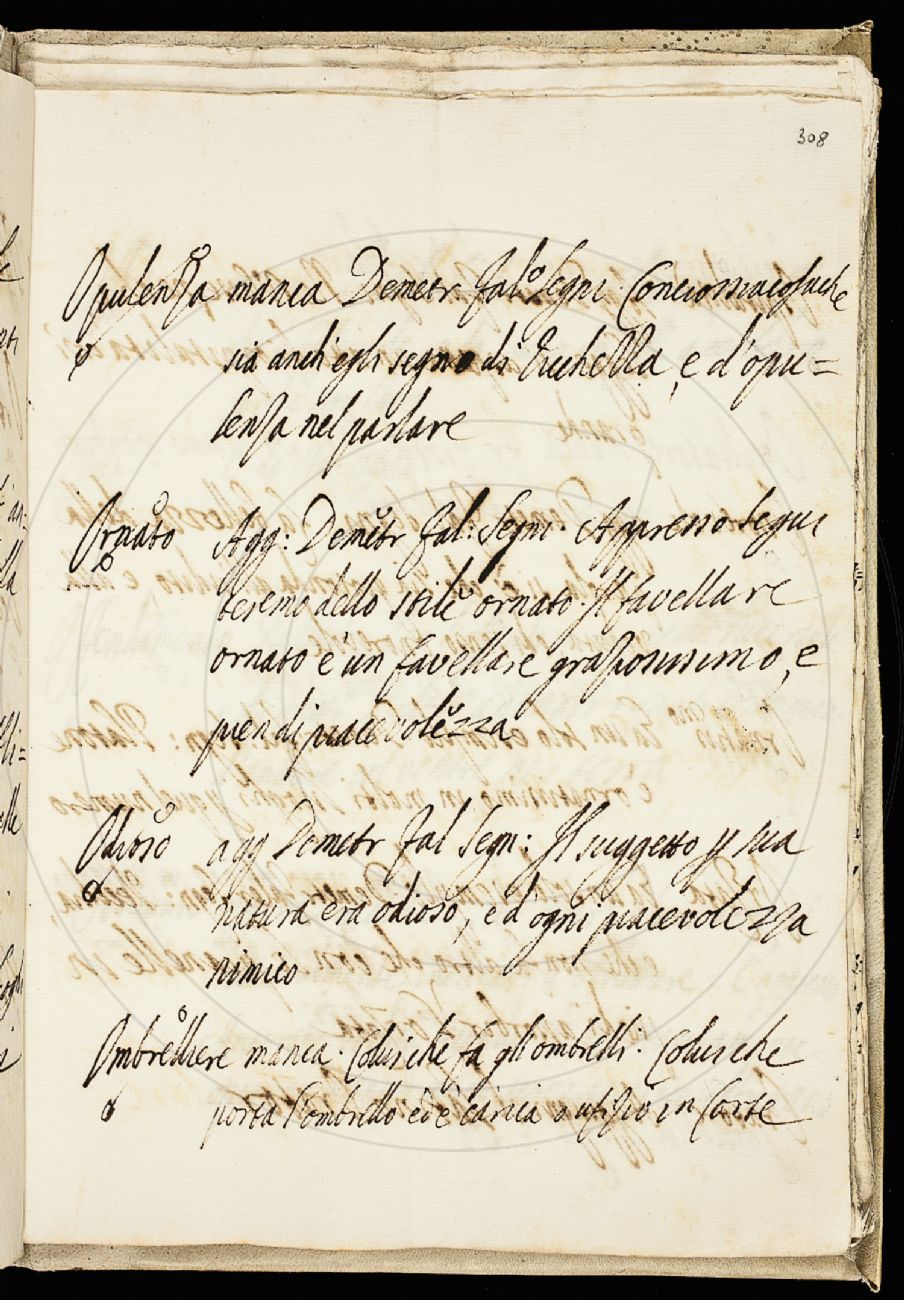 308
Opulenza manca Demetr. fal.º Segni. Conciossiacosache
sia anch'egli segno di ricchezza, e d'opu=
lenza nel parlare
Ornato Agg: Demetr fal: Segni. Appresso segui
teremo dello stile ornato. Il favellare
ornato è un favellare graziosissimo, e
pien di piacevolezza
Odioso agg Demetr fal Segn: Il suggetto p sua
natura era odioso, e d'ogni piacevolezza
nimico
Ombrelliere manca. Colui che fa gli ombrelli. Colui che
porta l'ombrello ed è carica o ufizio in Corte